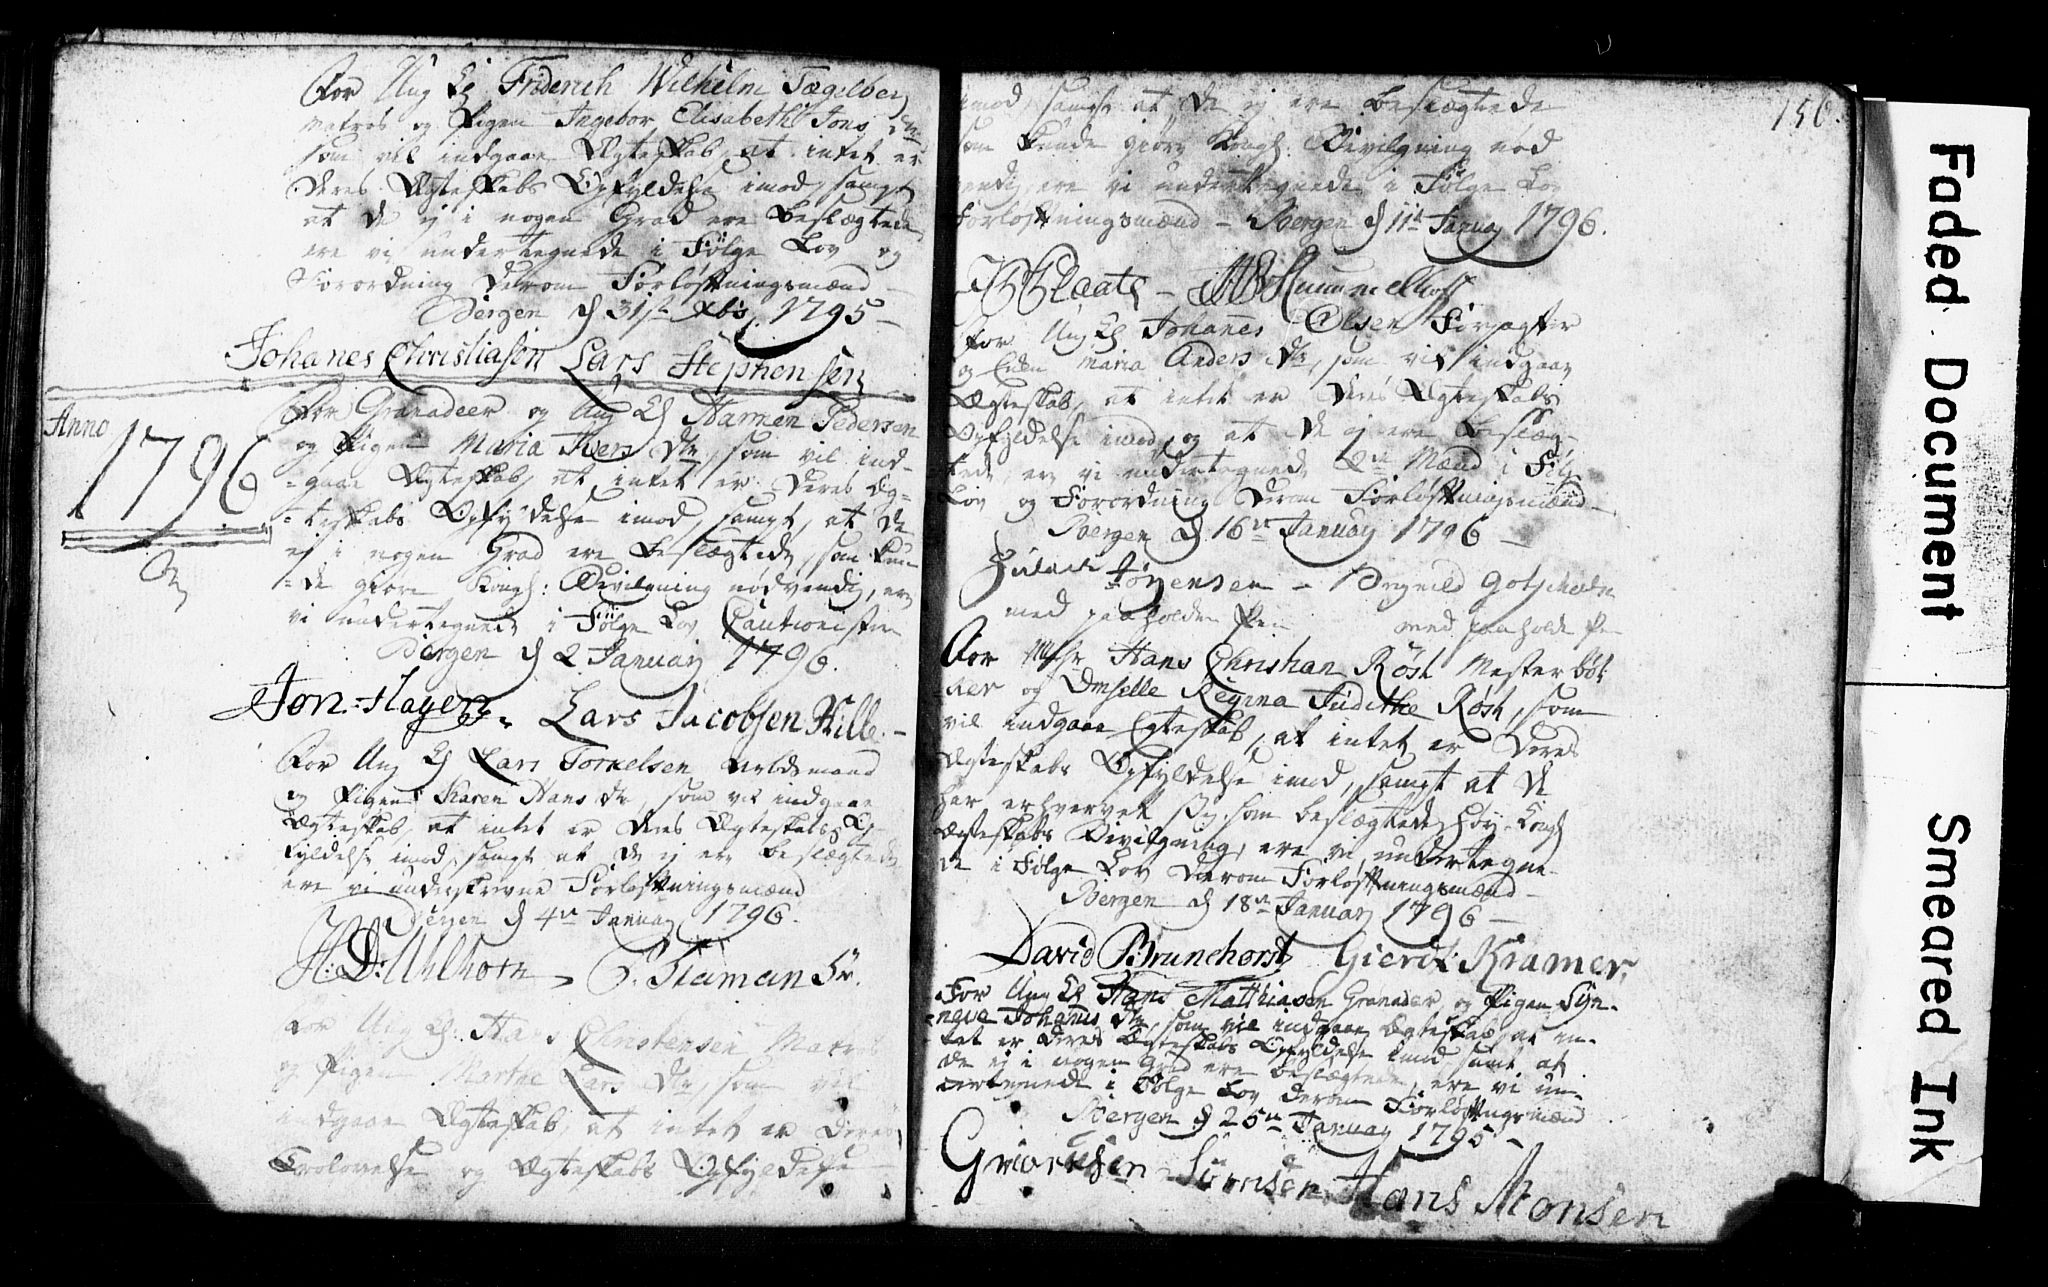 For Ung K Friderich Wilhelm Tægelberg
Matros og Pigen Ingebor Elisabeth Jons dtr
som vil indgaae Ægteskab, at intet er
deres Ægteskabs Opfyldelse imod, samt
at de ej i nogen Grad ere beslægtede
ere vi undertegnede i Følge Lov og
Forordning derom Forløftningsmænd
Bergen d 31st Xbr 1795
Johanes Christiasen Lars Stephensen
Anno
1796
For Granadeer og Ung K Harmen Pedersen
og Pigen Maria Ivers dtr, som vil ind-
-gaae Ægteskab, at intet er deres Æg-
-teskabs Opfyldelse imod, samt, at de
ej i nogen Grad ere beslægtede, som kun-
-de giøre Kongl: Bevilgning nødvendig, ere
vi undertegnede i Følge Lov Cautionister
Bergen d 2 January 1796.
Jon Hagen Lars Jacobsen Hille
For Ung K Lars Tornelsen
og Pigen Karen Hans dtr, som vil indgaae
Ægteskab, at intet er deres Ægteskabs Op-
fyldelse imod, samt at de ej ere beslægtede
ere vi underskrevne Forløftningsmænd
Bergen d 4de January 1796.
H:D: Uhlhorn S. Staman Sr.
For Ung K: Hans Christensen Matros
og Pigen Marthe Lars dtr, som vil
indgaae Ægteskab, at intet er deres
Trolovelse og Ægteskabs Opfyldelse
150.
imod, samt at de ej ere beslægtede
som kunde giøre Kongl: Bevilgning nød
vendig, ere vi undertegnede i Følge Lov
Forløftningsmænd - Bergen d 11te January 1796.
Plaats - Hummelhoff
For Ung K Johannes Olsen
og Enken Maria Anders dtr, som vil indgaae
Ægteskab, at intet er deres Ægteskabs
Opfyldelse imod, og at de ej ere beslæg-
tede, ere vi undertegnede Mænd i Følge
Lov og Forordning derom Forløftningsmænd
Bergen d 16de January 1796
Jørgensen - Gotschalksen
med paaholden Pen med paaholden Pen
For Msr Hans Christian Röst Mester bød-
ker og Dmselle Regina Judithe Röst, som
vil indgaae Egteskab, at intet er deres
Ægteskabs Opfyldelse imod, samt at de
har erhvervet sig som beslægtede høy-Kongl
Ægteskabs Bevilgning, ere vi undertegne-
de i Følge Lov derom Forløftningsmænd
Bergen d 18de January 1796
David Brunchorst Gierdt Kramer
For Ung K Hans Matthiasen Granader og Pigen Syn-
neve Johanes dtr, som vil indgaae Ægteskab, at in-
tet er deres Ægteskabs Opfyldelse imod samt at
de ej i nogen Grad ere beslægtede, ere vi un-
dertegnede i Følge Lov derom Forløftningsmænd
Bergen d 25de January 1795
Sörensen Hans Monsen
Faded Document
Smeared Ink